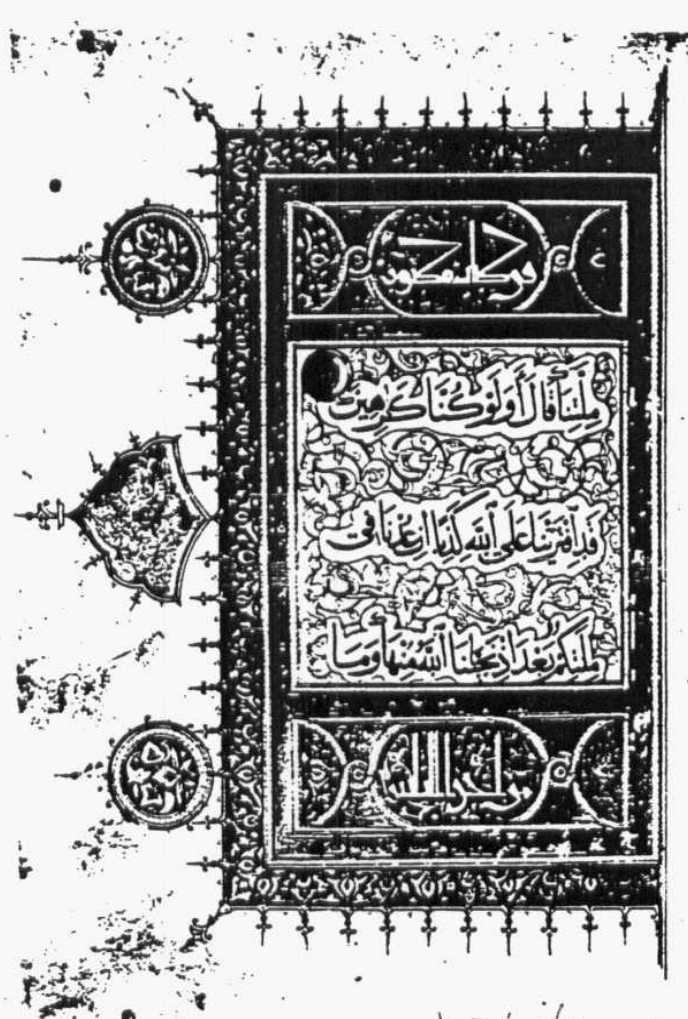 2
مِلَّتِنَا قَالَ أَوَلَوْ كُنَّا كَٰرِهِينَ
قَدِ ٱفْتَرَيْنَا عَلَى ٱللَّهِ كَذِبًا إِنْ عُدْنَا فِى
مِلَّتِكُم بَعْدَ إِذْ نَجَّىٰنَا ٱللَّهُ مِنْهَا وَمَا